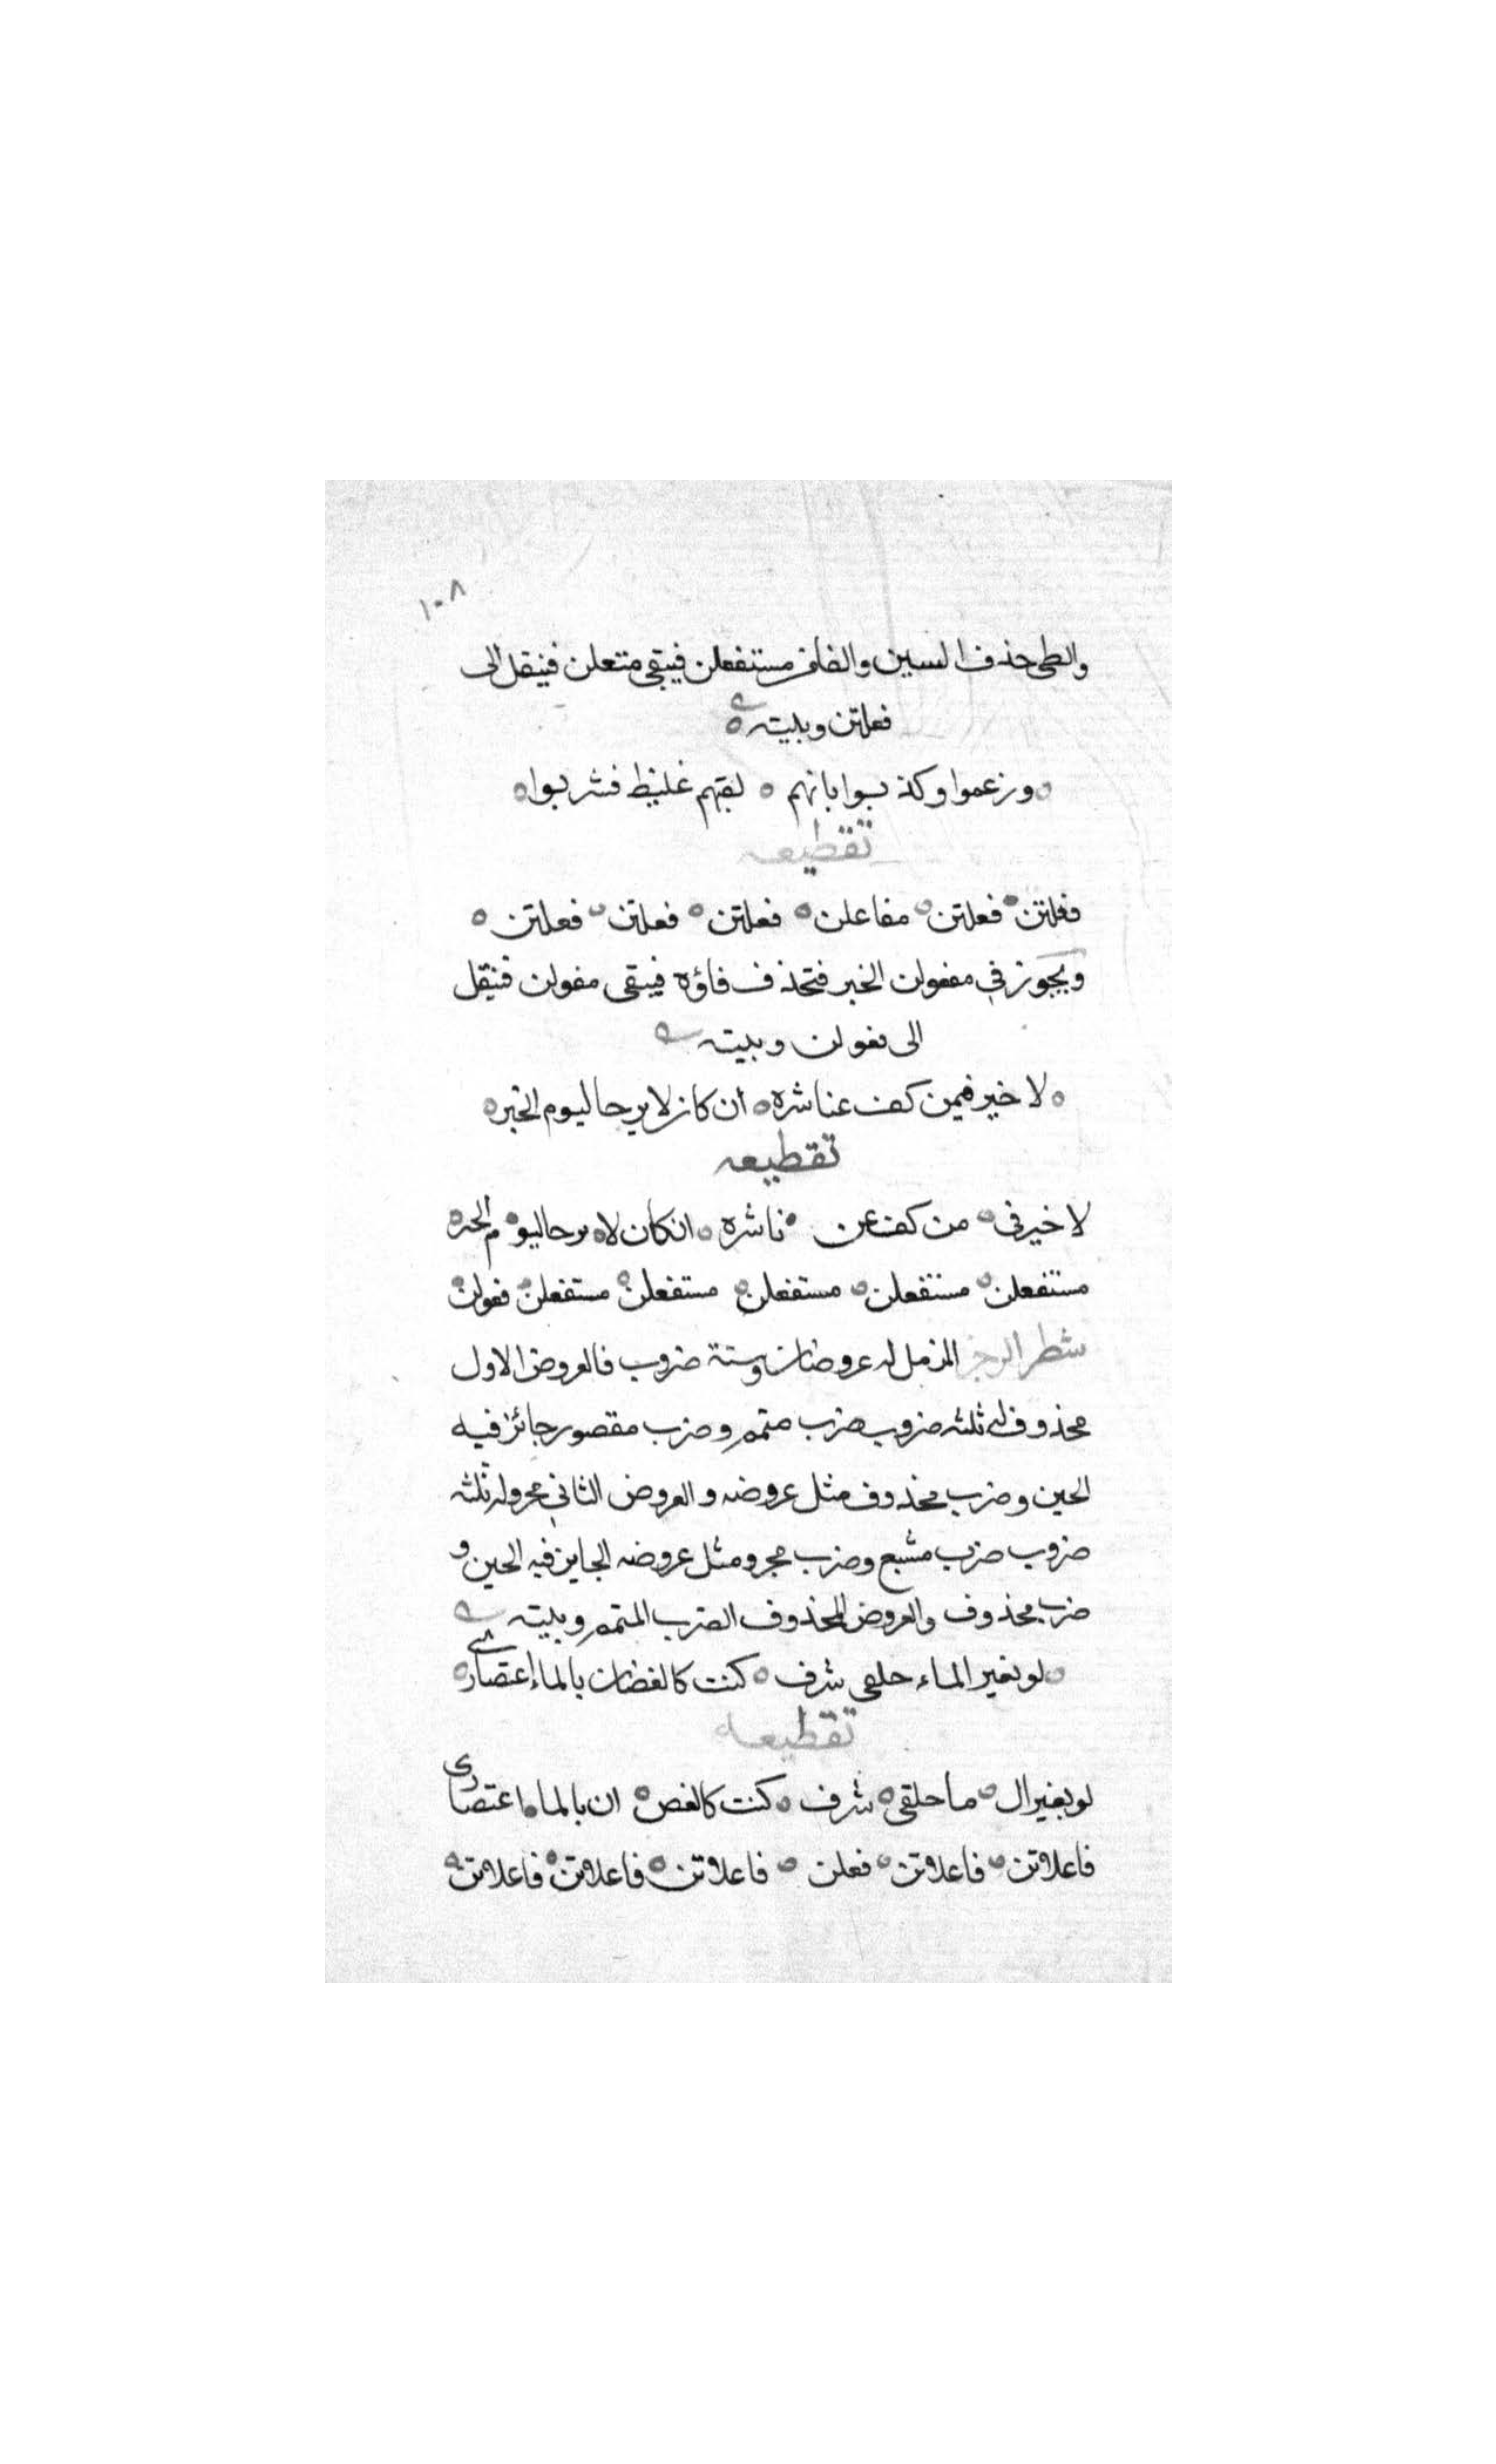 ١٠٨
والطى حذف السين والفا من مستفعلن فيبقى متعلن فينقل الى
فعلتن وبيته
وزعموا وكذبوا بانهم ه لقيهم غليظ فشربوا ه
تقطيعه
فعلتن ه فعلتن ه مفاعلن ه فعلتن ه فعلتن ه فعلتن ه
ويجوز في مفعولن الخبر فتحذف فاؤه فيبقى مفولن فنيقل
الى فعولن وبيته
ه لا خير فيمن كف عنا شره ه ان كان لا يرجا ليوم الخبره
تقطيعه
لا خير في ه من كف عن ه ناشره ه ان كان لا ه يرجا ليو ه م
مستفعلن ه مستفعلن ه مستفعلن ه مستفعلن ه مستفعلن ه فعولن ه
شطر الرجز المزمل له عروضان وستة ضروب فالعروض الاول
محذوف له ثلثه ضروب ضرب متمم وضرب مقصور جائز فيه
الحين وضرب محذوف مثل عروضه والعروض الثاني مجرو له ثلثه
ضروب ضرب مشبع وضرب مجرو مثل عروضه الجايز فيه الحين و
ضرب محذوف والعروض المحذوف الضرب المتمم وبيته
ه لو بغير الماء حلقى شرف ه كنت كالغضان بالماء اعتصارى ه
تقطيعه
لو بغير ال ه ما حلقى ه شرف ه كنت كالغص ه ان بالما ه اعتصارى
فاعلاتن ه فاعلاتن ه فعلن ه فاعلاتن ه فاعلاتن ه فاعلاتن ه